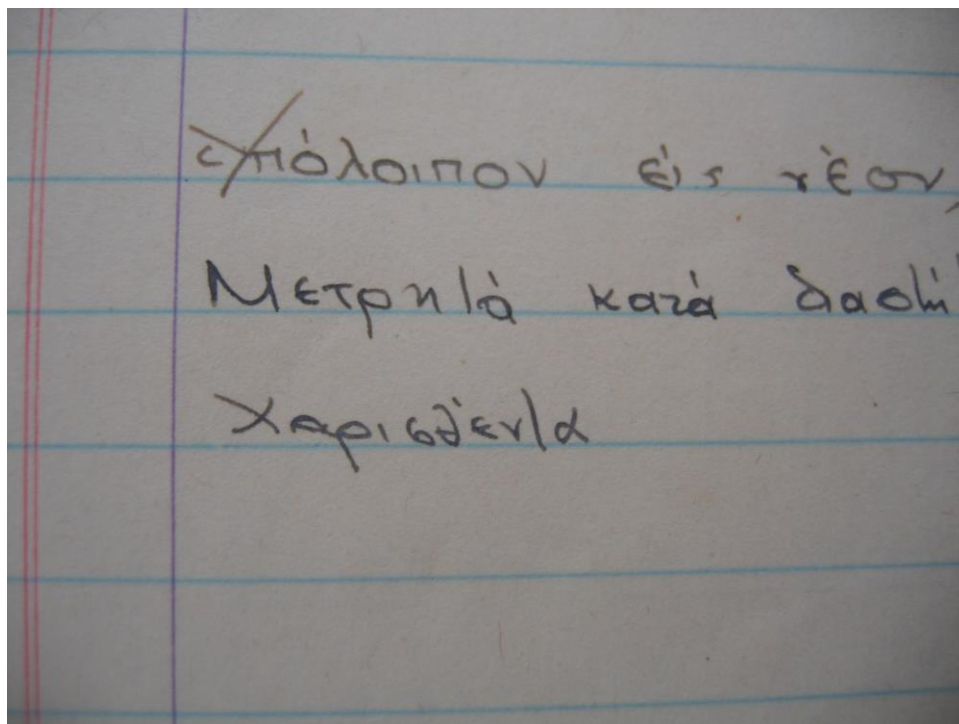 ὑπόλοιπον εἰς νέον
Μετρητά κατά
Χαρισθέντα